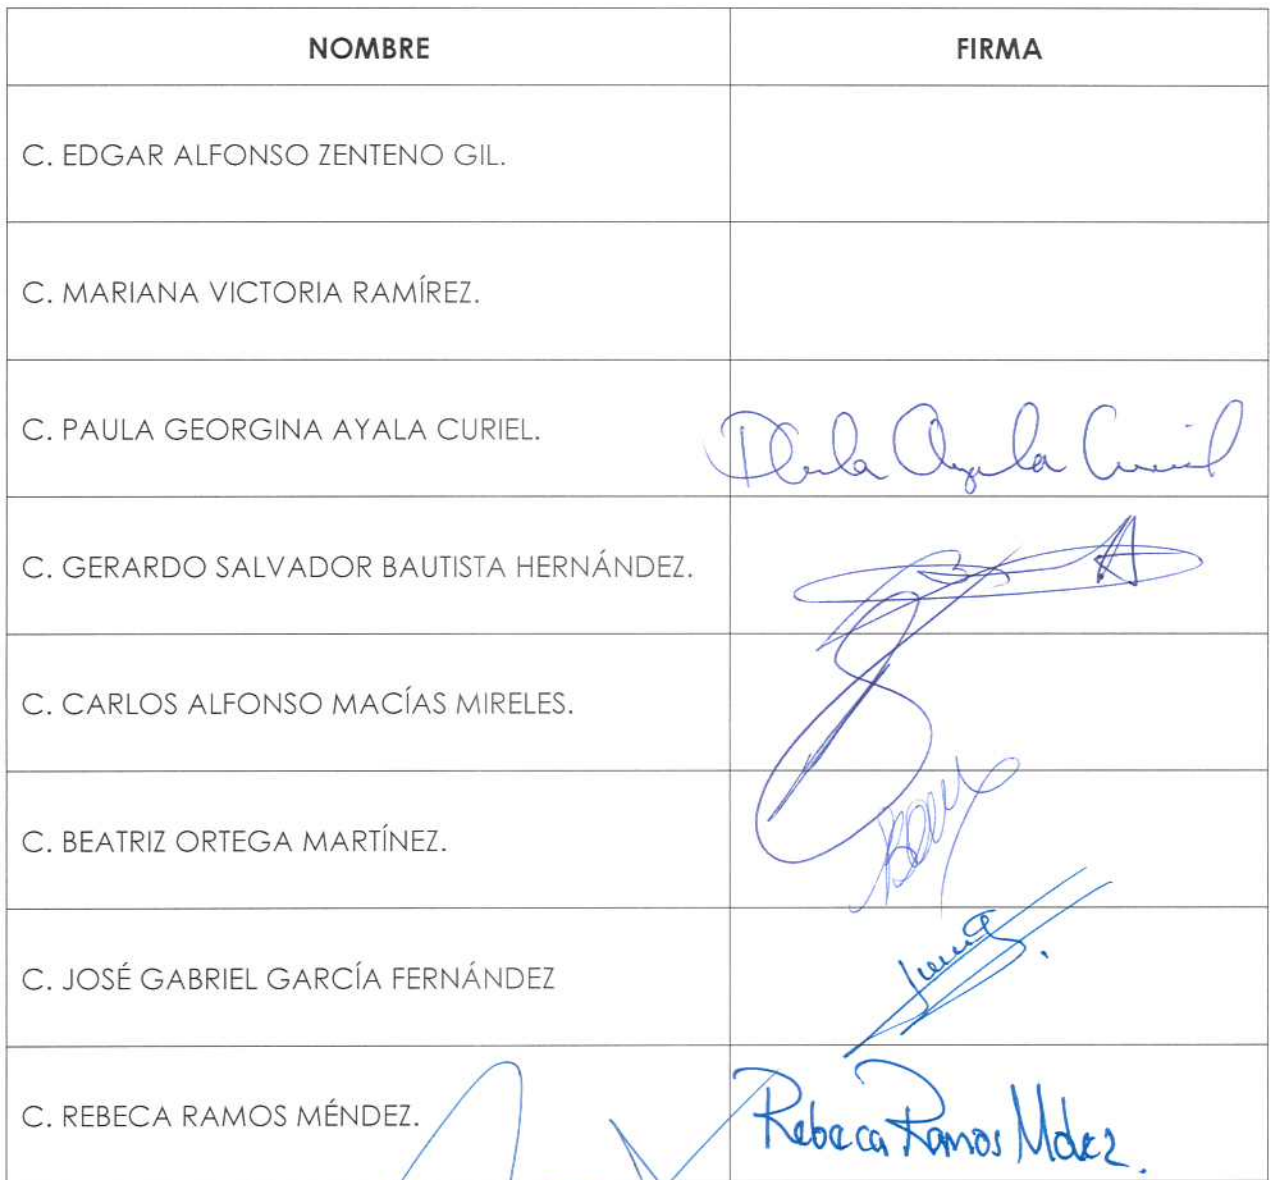 NOMBRE FIRMA
C. EDGAR ALFONSO ZENTENO GIL.
C. MARIANA VICTORIA RAMÍREZ.
C. PAULA GEORGINA AYALA CURIEL. Paula Ayala Curiel
C. GERARDO SALVADOR BAUTISTA HERNÁNDEZ.
C. CARLOS ALFONSO MACÍAS MIRELES.
C. BEATRIZ ORTEGA MARTÍNEZ.
C. JOSÉ GABRIEL GARCÍA FERNÁNDEZ
C. REBECA RAMOS MÉNDEZ. Rebeca Ramos Mdez.